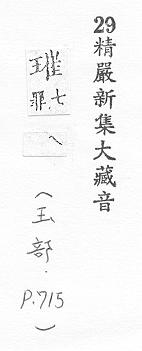 29精嚴新集大藏音
璀
七罪
(玉部.P.715)